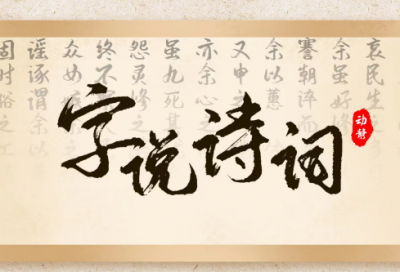 字说诗词
动静
哀民生
余虽好修
謇朝谇而
余以蕙
又申
亦余心
虽九死其
怨灵修
终不
众女
谣诼谓余以
固时俗之工